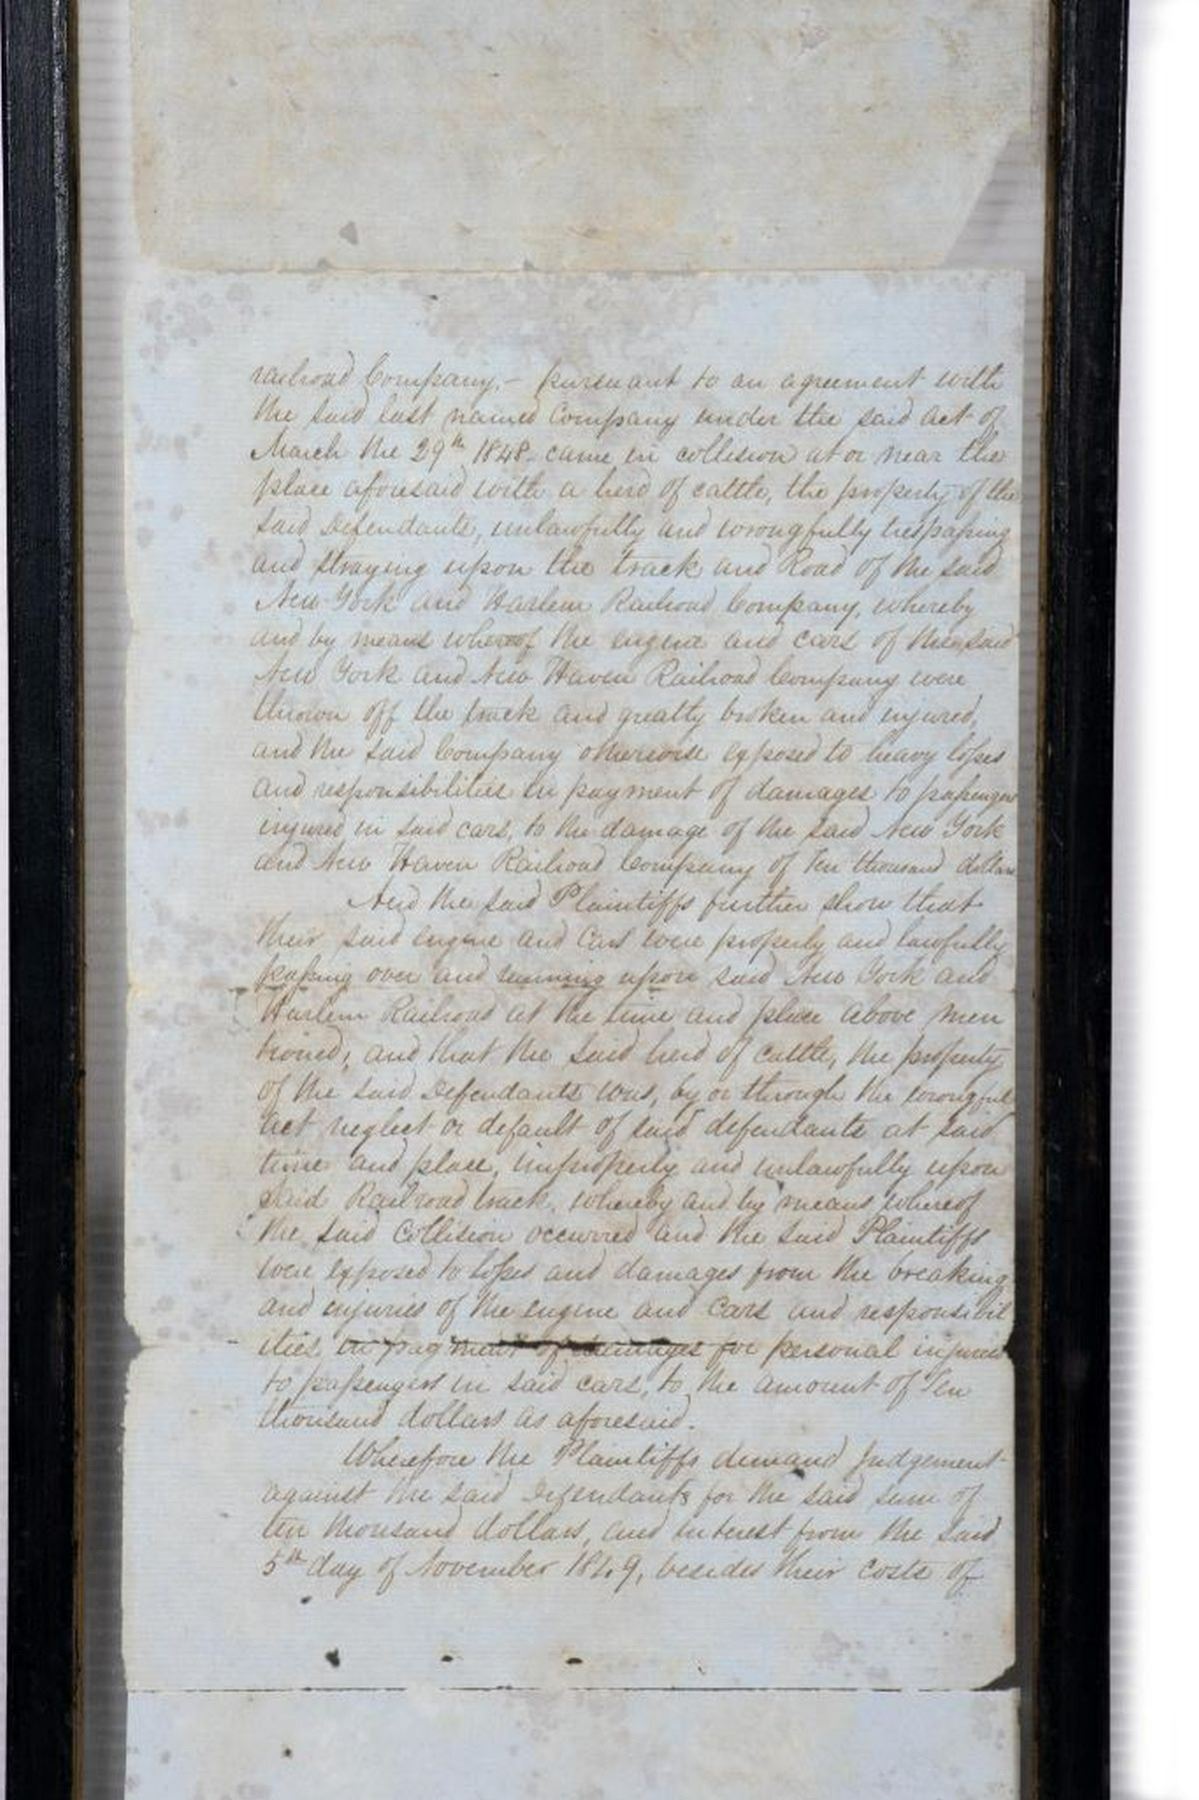 railroad Company,- pursuant to an agreement with
the said last named Company under the said act of
March the 29th 1848 - came in collision at or near the
place aforesaid with a herd of cattle, the property of the
said Defendants, unlawfully and wrongfully trespassing
and straying upon the track and Road of the said
New York and Harlem Railroad Company, whereby
and by means whereof the engine and cars of the said
New York and New Haven Railroad Company were
thrown off the track and greatly broken and injured,
and the said Company otherwise exposed to heavy losses
and responsibilities in payment of damages to passengers
injured in said cars, to the damage of the said New York
and New Haven Railroad Company of Ten thousand dollars
And the said Plaintiffs further show that
their said engine and Cars were properly and lawfully
passing over and running upon said New York and
Harlem Railroad at the time and place above men
tioned, and that the said herd of cattle, the property
of the said Defendants was, by or through the wrongful
act neglect or default of said defendants at said
time and place, improperly and unlawfully upon
said Railroad track, whereby and by means whereof
the said Collision occurred and the said Plaintiffs
were exposed to losses and damages from the breaking
and injuries of the engine and Cars and responsibil
ities in payment of damages for personal injuries
to passengers in said cars, to the amount of Ten
thousand dollars as aforesaid.
Wherefore the Plaintiffs demand Judgement
against the said Defendants for the said sum of
ten thousand dollars, and interest from the said
5th day of November 1849, besides their costs of